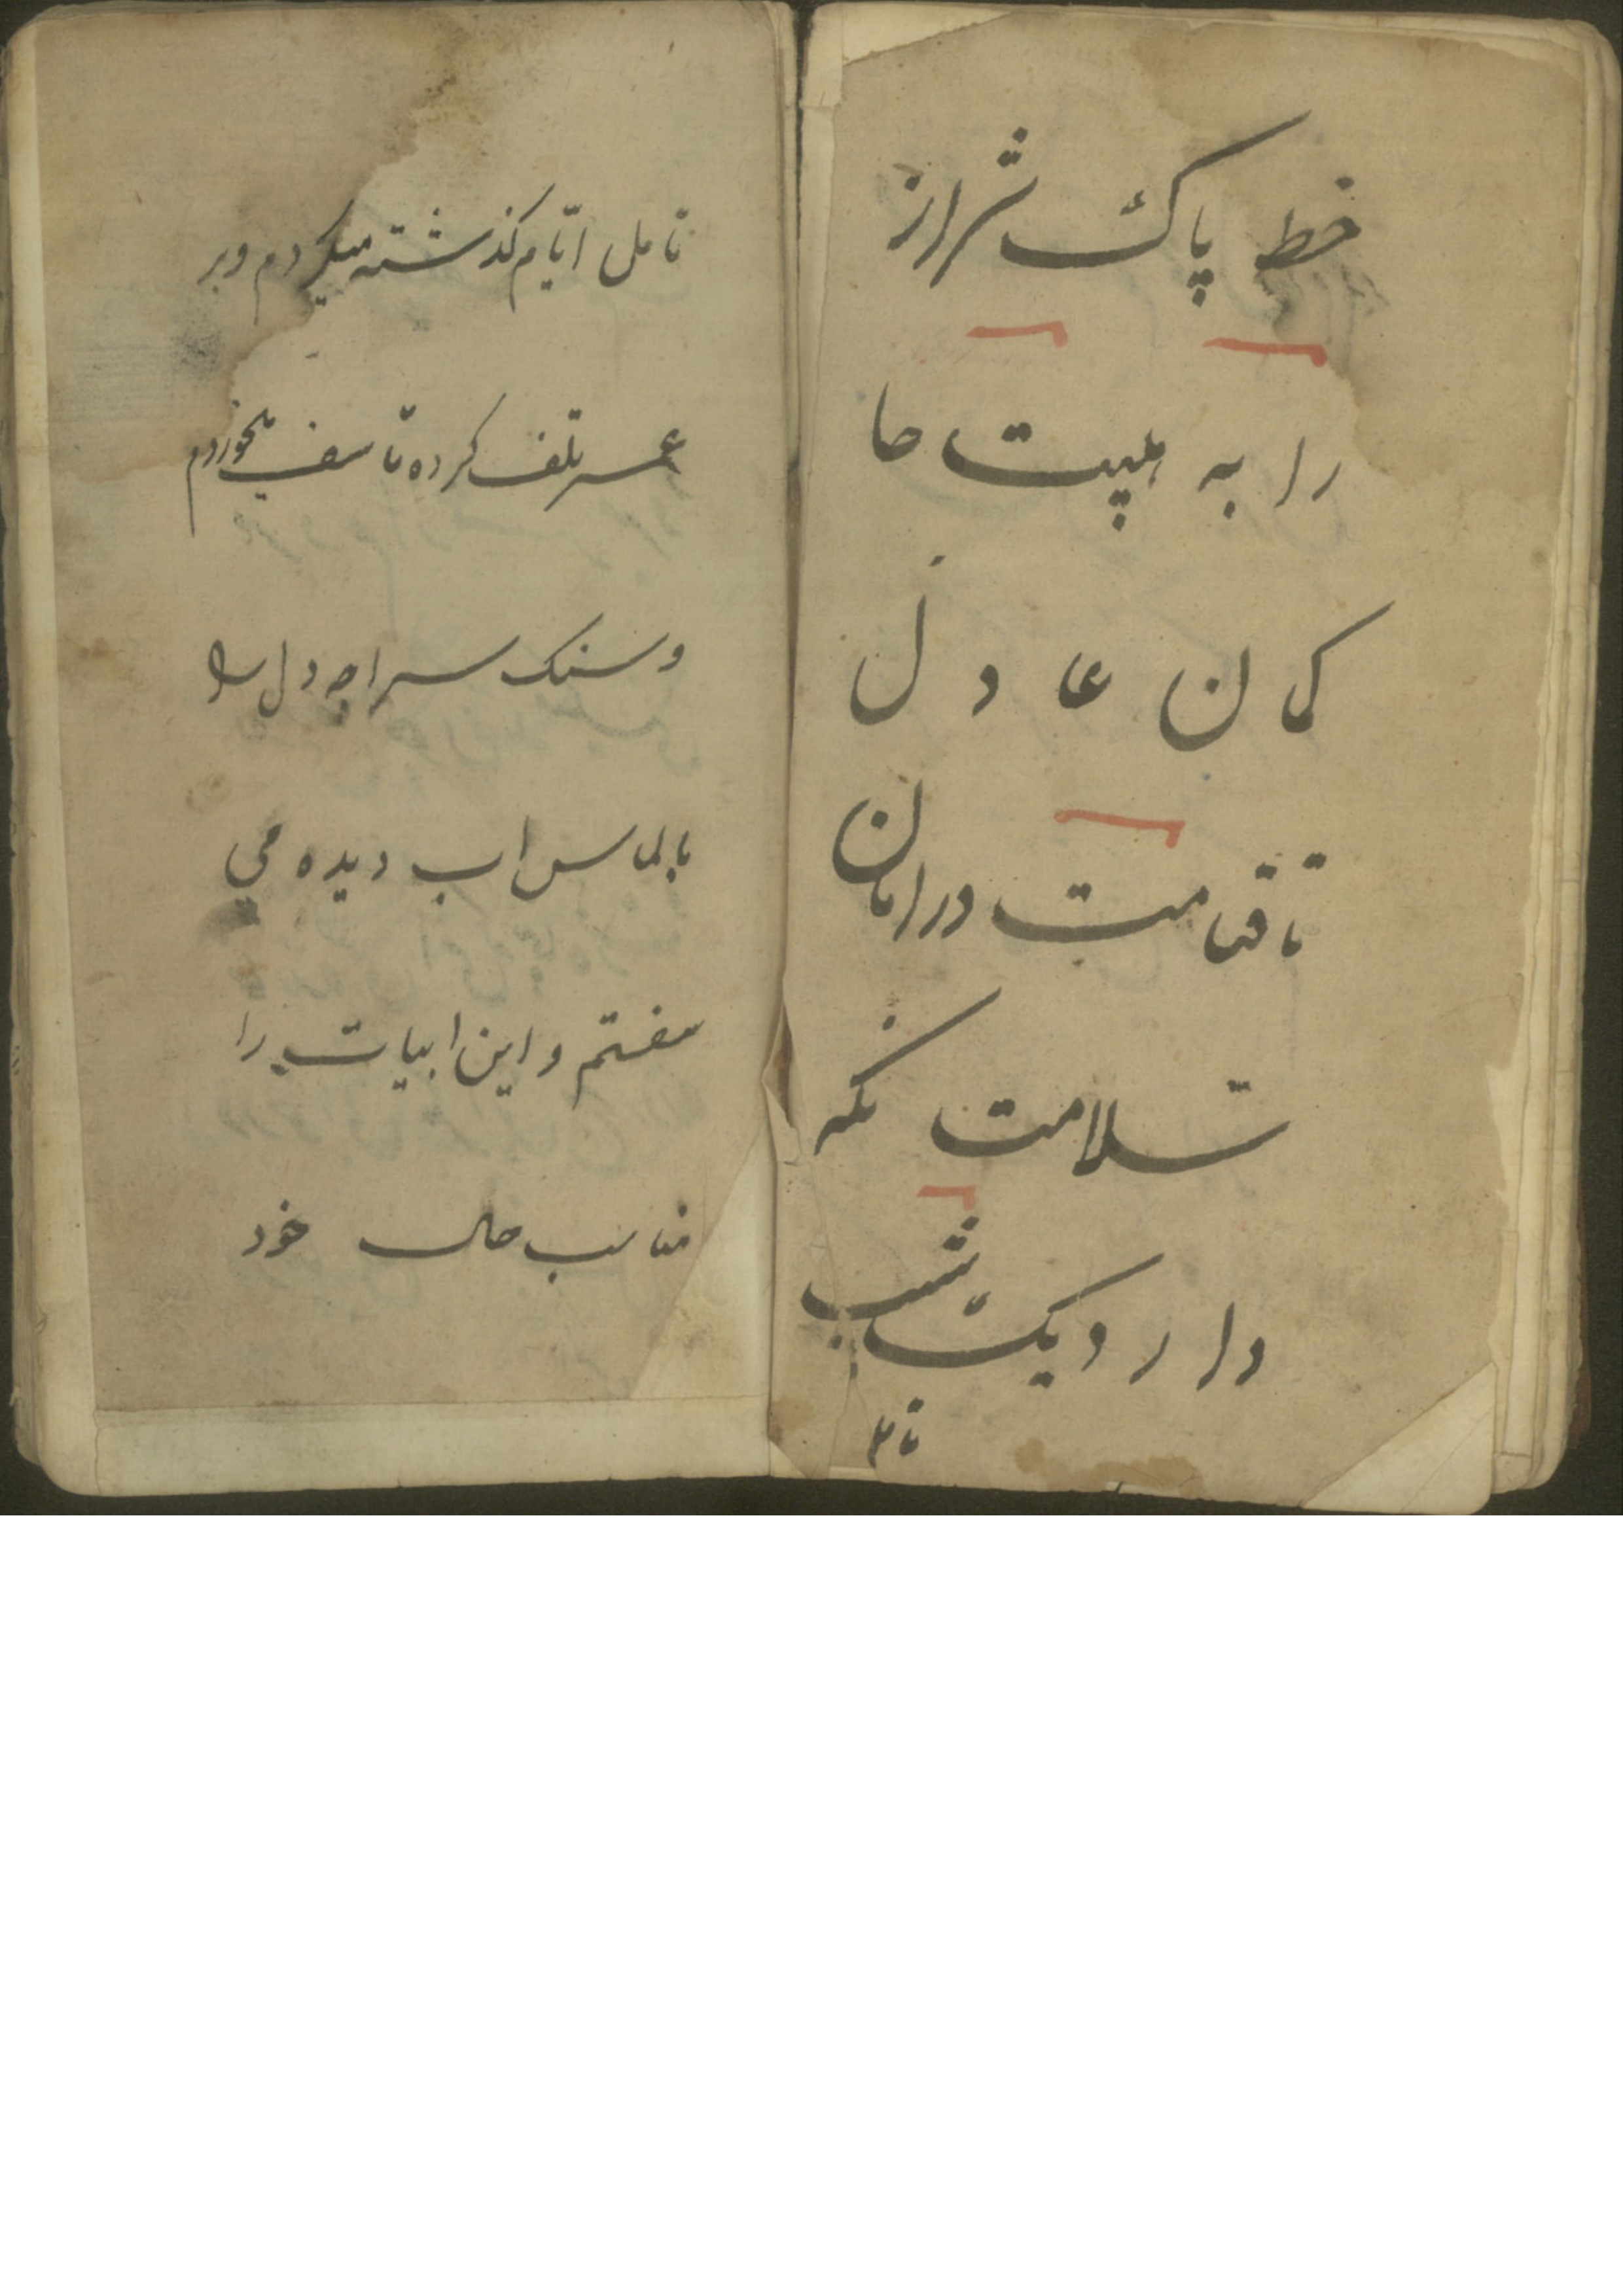 خطّ پاک شیراز
را به هیبت حا
کمان عادل
تا قیامت در امان
سلامت نکه
دارد یک شب
تا م
تا مل ایّام کذشته میکردم و بر
عمر تلف کرده تاسف میخوردم
و سنک سراچه دل را
بالماس اب دیده می
سفتم و این ابیات را
مناسب حال خود